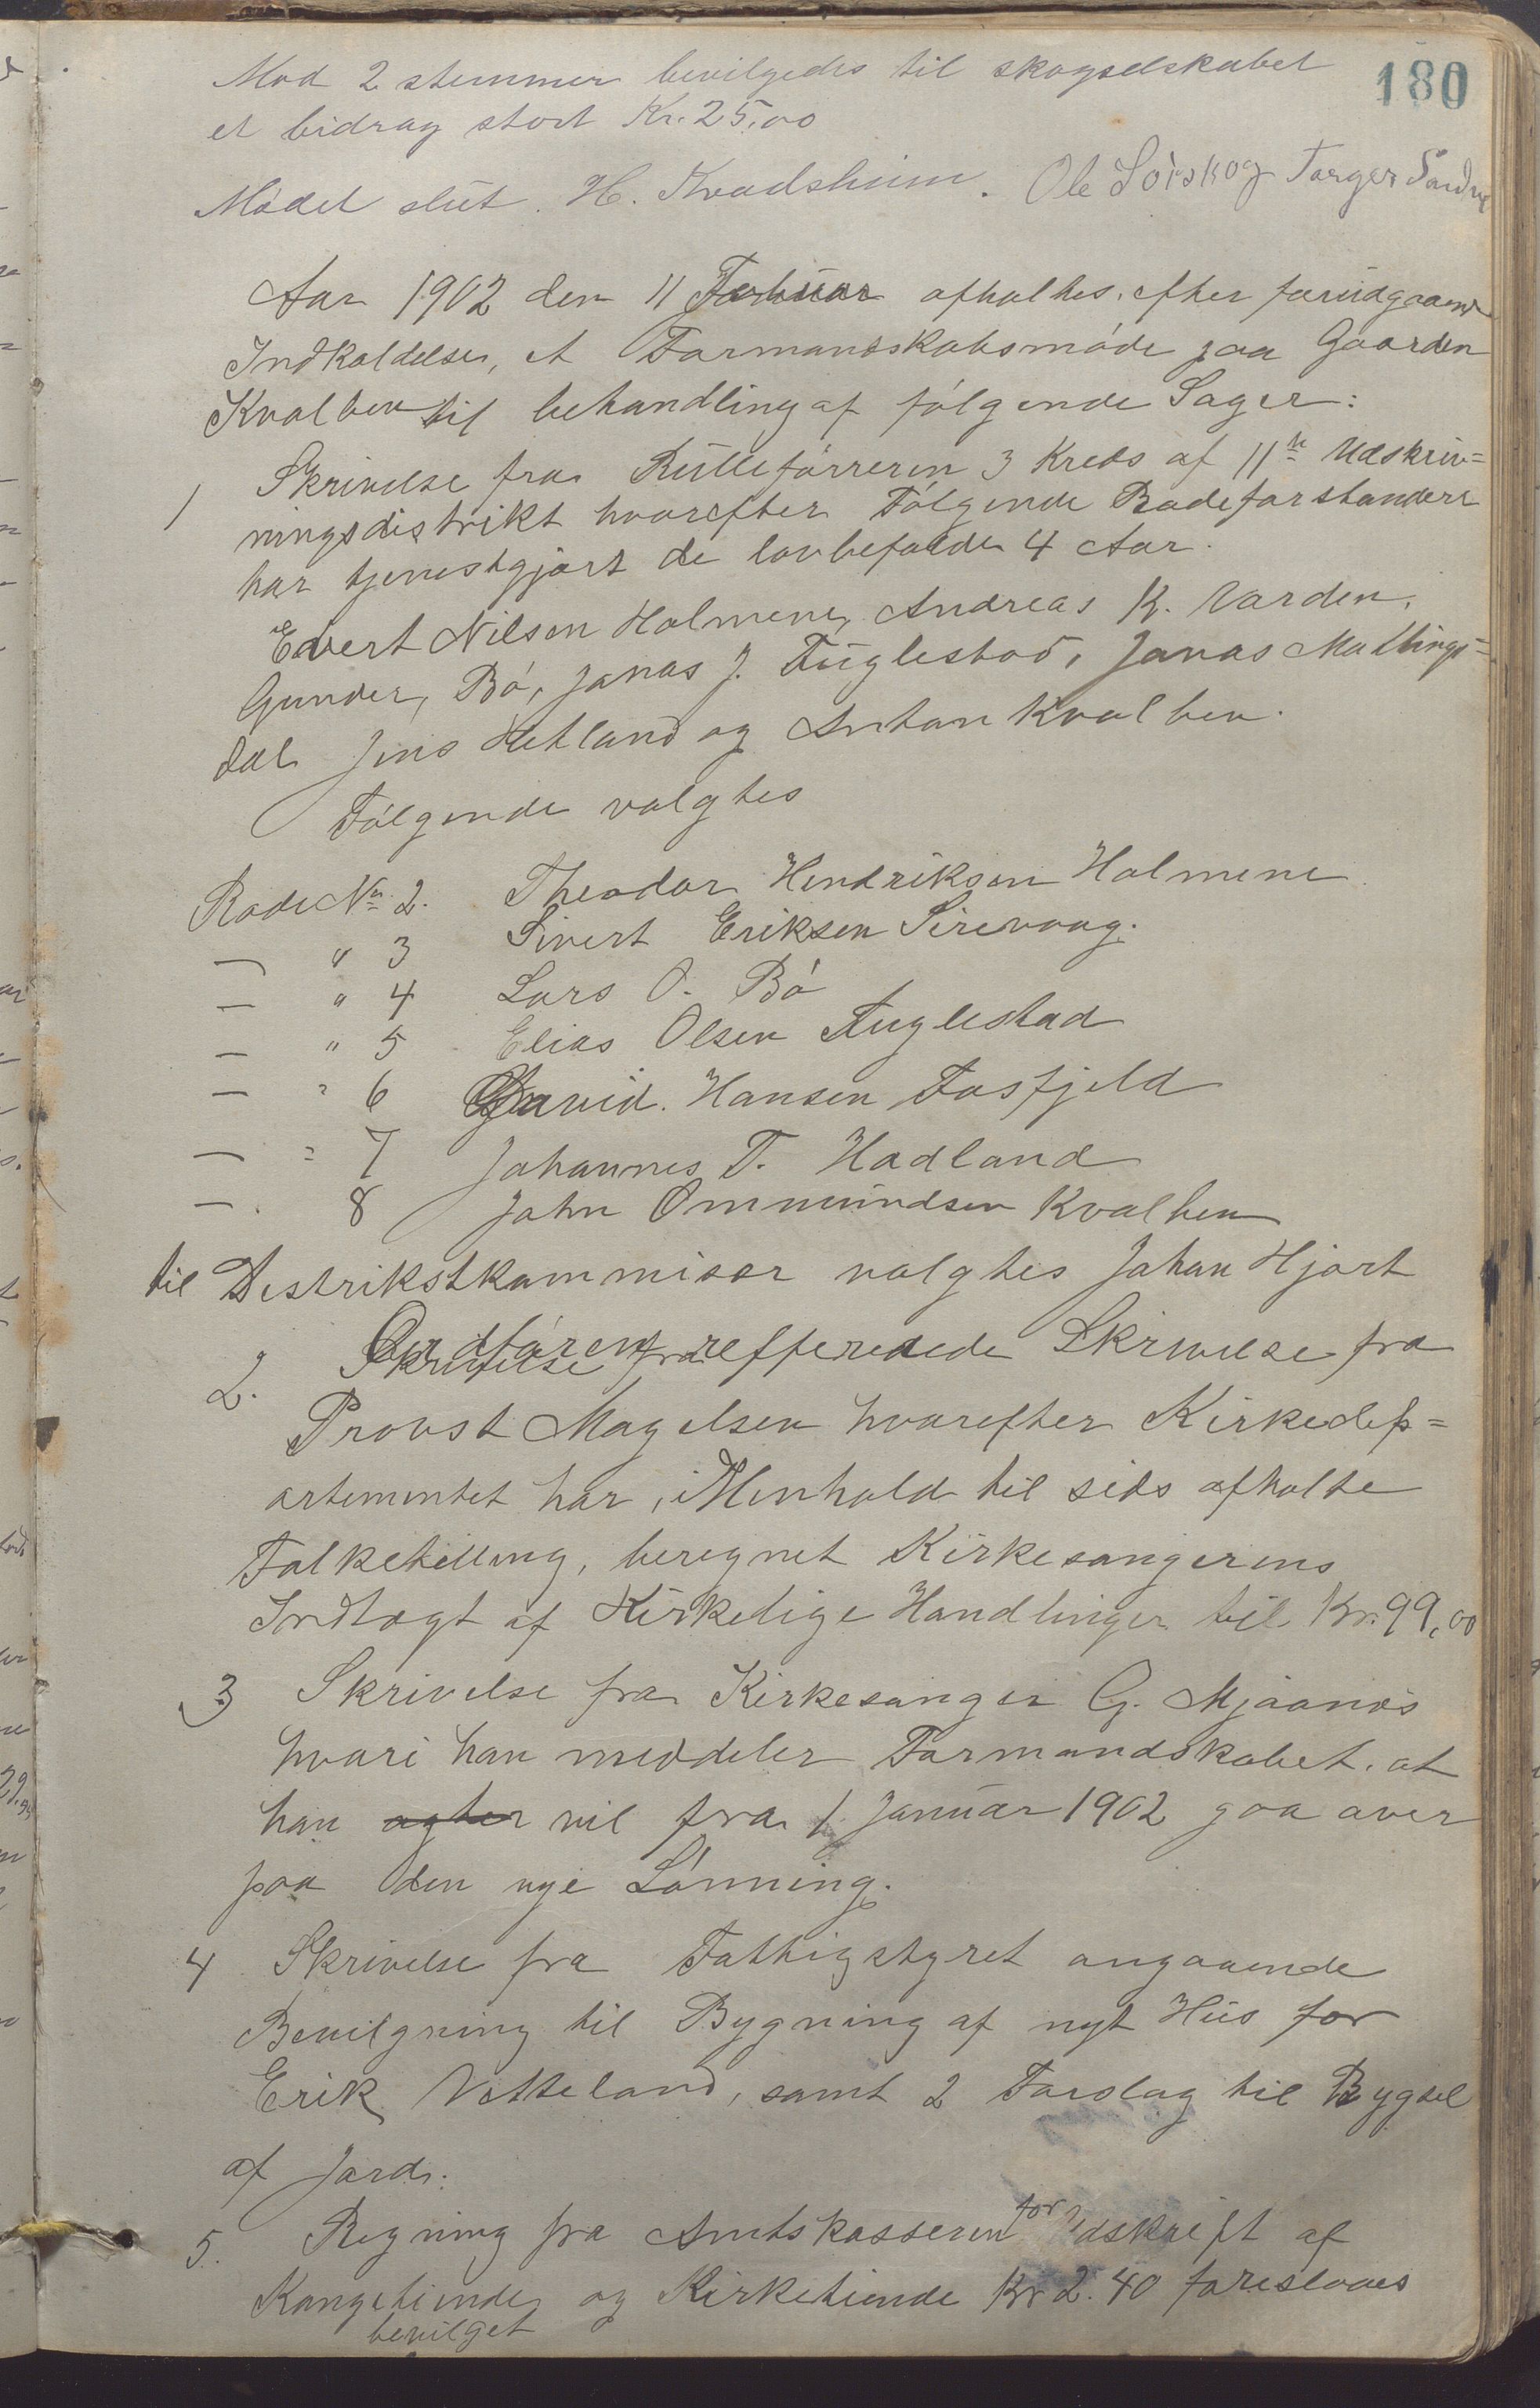 180
Mod 2 stemmer bevilgedes til skogselskabet
et bidrag stort Kr. 25,00
Mødet slut. H. Kvadsheim. Ole Sörskog Torger
Aar 1902 den 11 Februar afholtes, efter forudgaaend
Indkaldelse, et Formandskabsmöde paa Gaarden
Kvalben til behandling af fölgende Sager:
1 Skrivelse fra Rulleförreren 3 Kreds af 11te Udskriv=
ningsdistrikt hvorefter Fölgende Rodeforstandere
har tjenestgjort de lovbefalede 4 Aar.
Edvert Nilsen Holmene, Andreas K. Varden,
Gunder, Bö, Jonas J. Fuglestad, Jonas Mallings=
dal Jens Hetland og Anton Kvalben.
Fölgende valgtes
Rode No 2. Theodor Hendriksen Holmene
— " 3 Sivert Eriksen Sirevaag.
— " 4 Lars O. Bö
— " 5 Elias Olsen Fuglestad
— " 6 David. Hansen Fosfjeld
— " 7 Johannes T. Hadland
— . 8 John Ommundsen Kvalben
til Destrikstkommisær valgtes Johan Hjort
2. Ordföreren refferedede Skrivelse fra
Provst Magelsen hvorefter Kirkedep=
artementet har, i Menhold til sids afholte
Folketelling, beregnet Kirkesangerens
Indtægt af Kirkelige Handlinger til Kr. 99,00
3 Skrivelse fra Kirkesanger G. Mjaanes
hvori han meddeler Formandskabet, at
han agter vil fra 1 Januar 1902 gaa over
paa den nye Lönning.
4 Skrivelse fra Fattigstyret angaaende
Bevilgning til Bygning af nyt Hus for
Erik Vetteland, samt 2 Forslag til Bygsel
af Jord.
5. Regning fra Amtskasseren for Udskrift af
Kongetiende og Kirketiende Kr 2.40 foreslaaes
bevilget